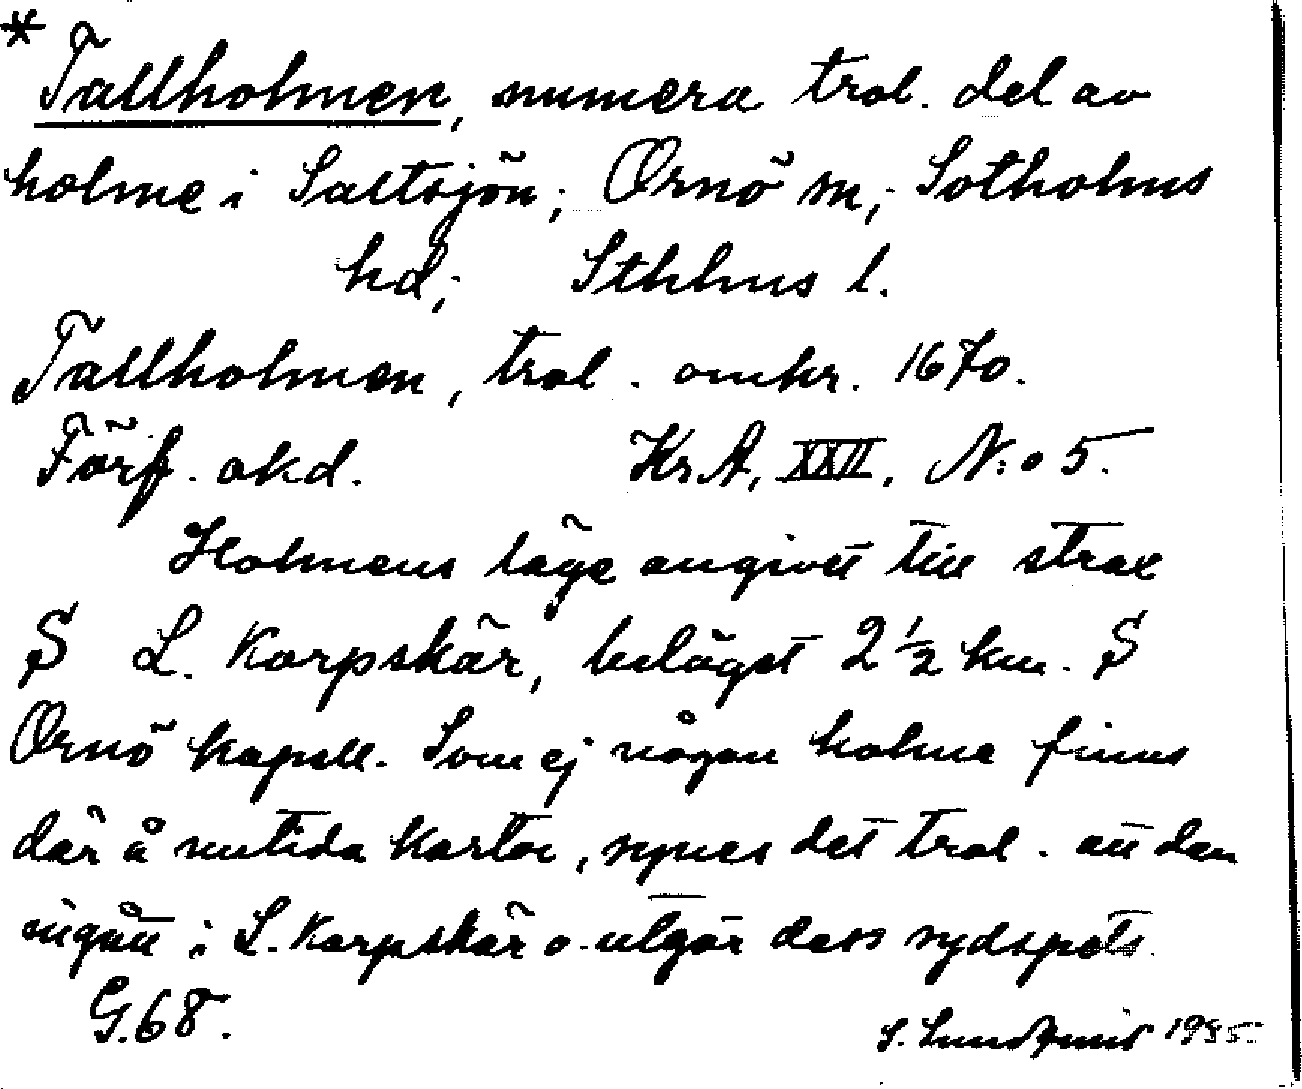 * Tallholmen, numera trol. del av
holme i Saltsjön; Ornö sn; Sotholms
hd; Sthlms l.
Tallholmen, trol. omkr. 1670.
Förf. okd. Kr.A. XXII. N:o 5.
Holmens läge angivet till strax
S L. Korpskär, beläget 2 ½ km. S
Ornö kapell. Som ej någon holme finns
där å nutida kartor, synes det trol. att den
ingått i L. Korpskär o. utgör dess sydspets.
G.68. S. Lundqvist 1935.